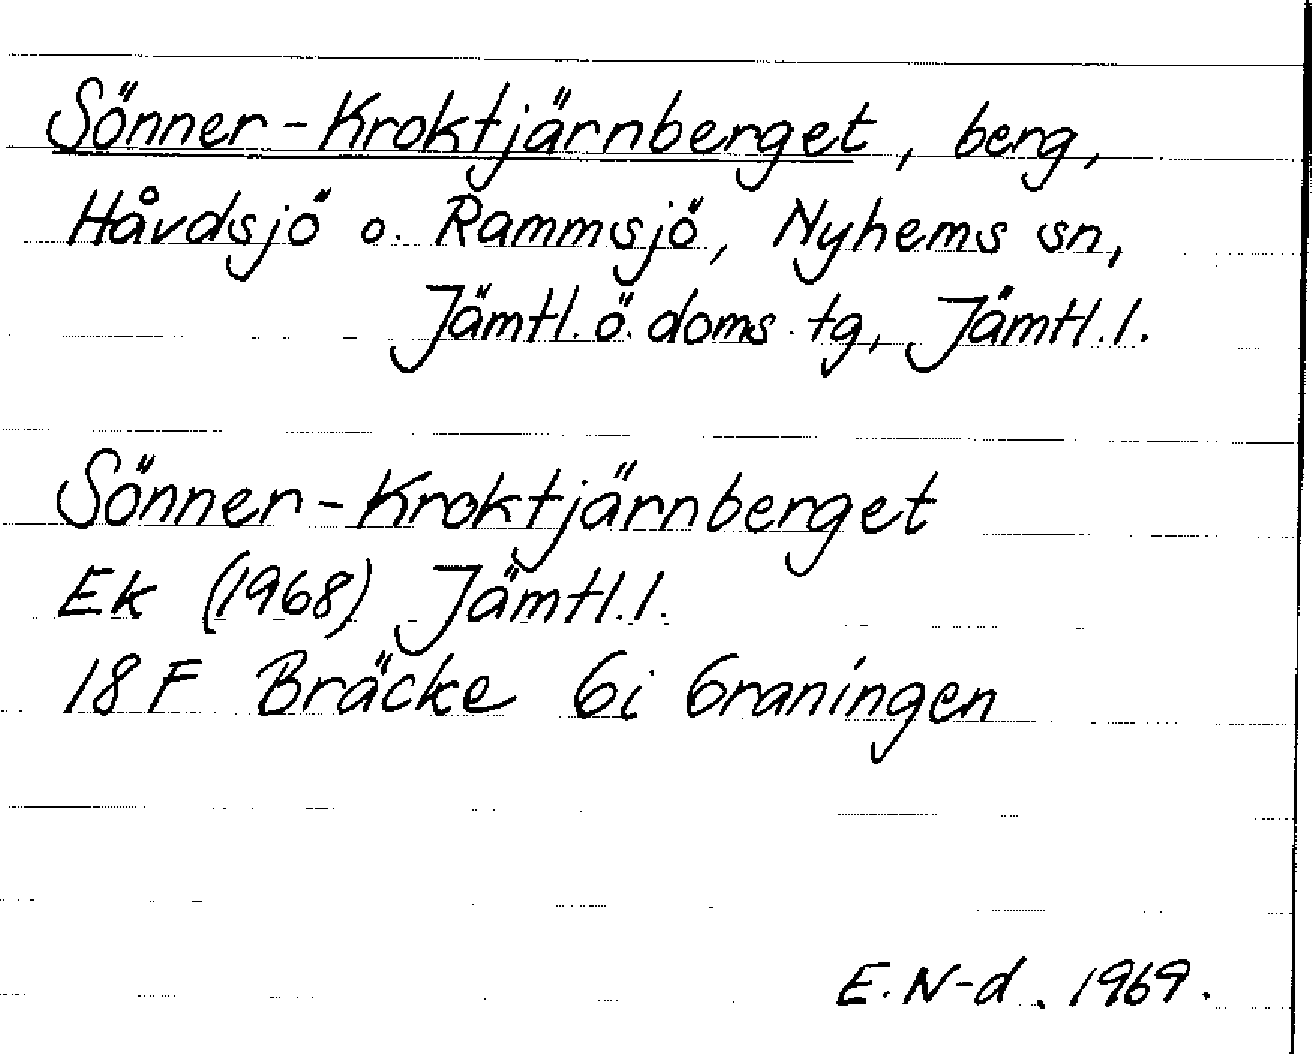 Sönner-Kroktjärnberget, berg,
Håvdsjö o. Rammsjö, Nyhems sn,
Jämtl. ö. doms. tg, Jämtl. l.
Sönner-Kroktjärnberget
Ek (1968) Jämtl. l.
18 F Bräcke 6i Graningen
E. N-d. 1969.